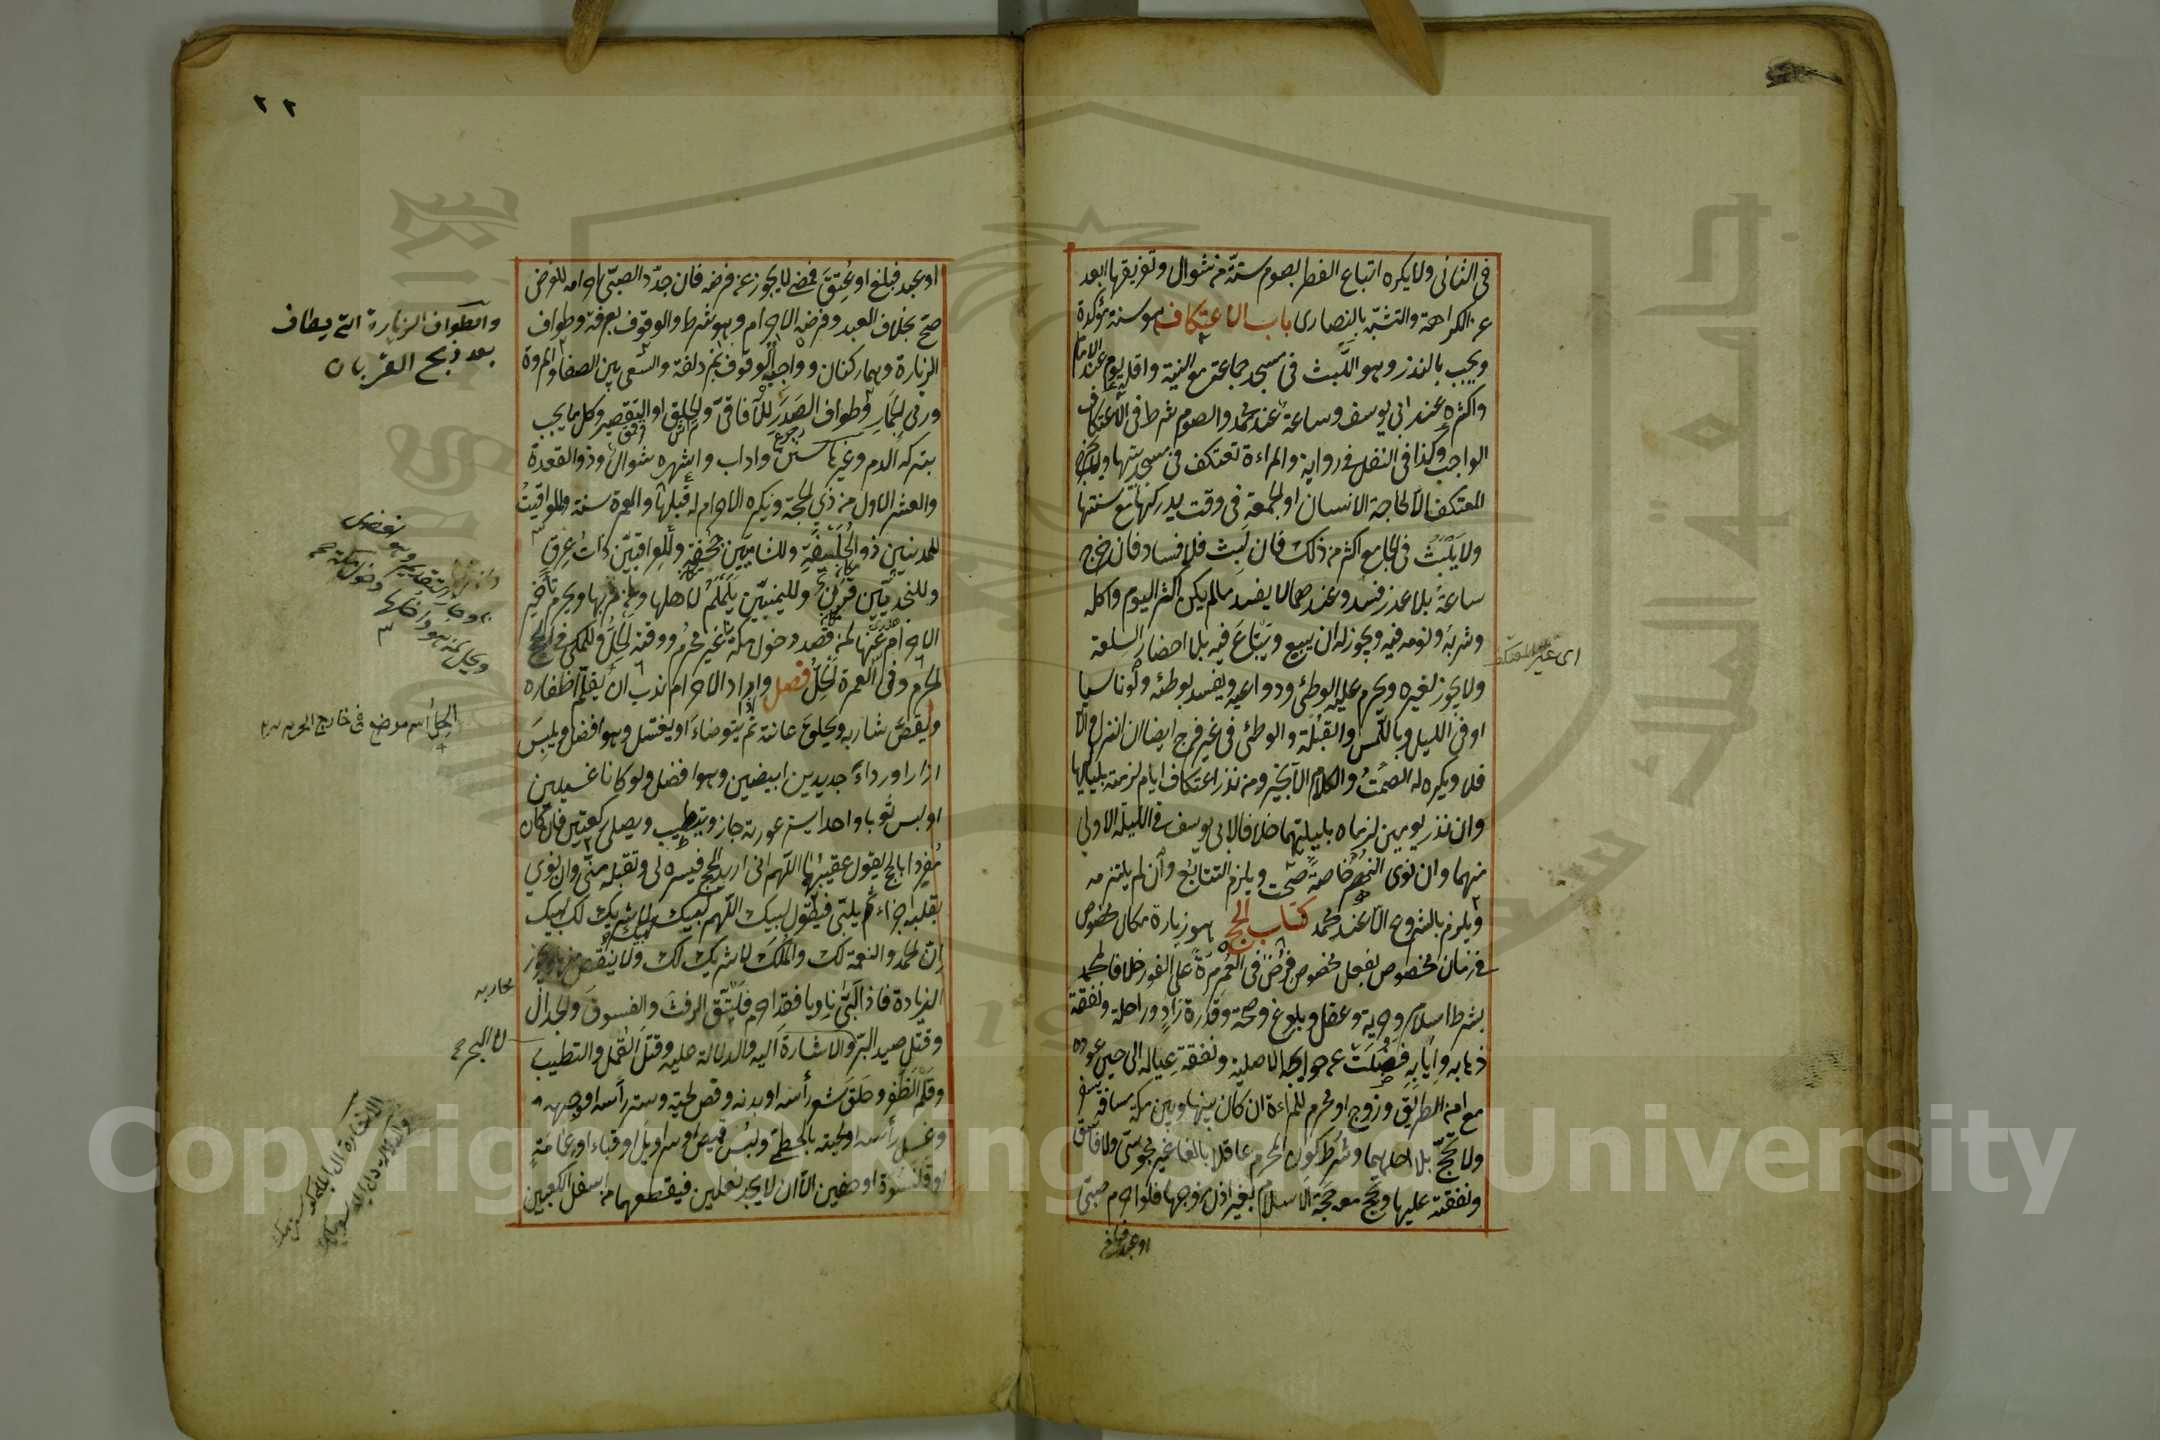 فى الثانى ولا يكره اتباع الفطر بصوم ستة من شوال وتفريقها ابعد
عن الكراهة والتشبه بالنصارى باب الاعتكاف هو سنة مؤكدة
ويجب بالنذر وهو اللبث فى مسجد جماعة مع النية واقله يوم عند الامام
واكثره عند ابى يوسف وساعة عند محمد والصوم شرط فى الاعتكاف
الواجب وكذا فى النفل فى رواية والمراءة تعتكف فى مسجد بيتها ولا يخرج
المعتكف الا لحاجة الانسان او الجمعة فى وقت يدركها مع سنتها
ولا يلبث فى الجامع اكثر من ذلك فان لبث فلا فساد فان خرج
ساعة بلا عذر فسد وعندهما لا يفسد ما لم يكن اكثر اليوم واكله
وشربه ونومه فيه ويجوز له ان يبيع ويبتاع فيه بلا احضار السلعة
ولا يجوز لغيره ويحرم عليه الوطئ ودواعيه ويفسد بوطئه ولو ناسيا
او فى الليل وباللمس والقبلة والوطئ فى غير فرج ايضا ان انزل والا
فلا ويكره له الصمت والكلام الا بخير ومن نذر اعتكاف ايام لزمته بلياليها
وان نذر يومين لزماه بليلتهما خلافا لابى يوسف فى الليلة الاولى
منهما وان نوى النهر خاصة صحت ويلزم التتابع وان لم يلتزمه
ويلزم بالشروع الا عند محمد كتاب الحج هو زيارة مكان مخصوص
فى زمان مخصوص بفعل مخصوص فرض فى العمر مرة على الفور خلافا لمحمد
بشرط اسلام وحرية وعقل وبلوغ وصحة وقدرة زاد وراحلة ونفقة
ذهابه وايابه فضلت عن حوايجه الاصلية ونفقة عياله الى حين عوده
مع امن الطريق وزوج او محرم للمراءة ان كان بينها وبين مكة مسافة سفر
ولا تحج بلا احدهما وشرط كون المحرم عاقلا بالغا غير مجوسى ولا فاسق
ونفقته عليها وتحج معه حجة الاسلام بغير اذن زوجها فلو احرم صبى
او عبد فبلغ
اى غير المعتكف
٢٢
او عبد فبلغ او عتق فمضى لا يجوز عن فرضه فان جدد الصبى احرامه للفرض
صح بخلاف العبد وفرضه الاحرام وهو شرط والوقوف بعرفة وطواف
الزيارة وهما ركنان وواجبه الوقوف بمزدلفة والسعى بين الصفا والمروة
ورمى الجمار وطواف الصدر للآفاقى والحلق او التقصير وكل ما يجب
بتركه الدم وغيرها سنن واداب واشهره شوال وذو القعدة
والعشر الاول من ذى الحجة ويكره الاحرام له قبلها والعمرة سنة والمواقيت
للمدنيين ذو الحليفة وللشاميين جحفة وللعراقيين ذات عرق
وللنجديين قرن ولليمنيين يلملم لاهلها ولمن مر بها ويحرم تأخير
الاحرام عنها لمن قصد دخول مكة غير محرم ووقته الحل وللمكى فى الحج
الحرم وفى العمرة الحل فصل واذا اراد الاحرام ندب ان يقلم اظفاره
ويقص شاربه ويحلق عانته ثم يتوضاء او يغتسل وهو افضل ويلبس
ازارا ورداء جديدين ابيضين وهو افضل ولو كانا غسيلين
او لبس ثوبا واحدا يستر عورته جاز ويتطيب ويصلى ركعتين فان كان
مفردا بالحج يقول عقيبهما اللهم انى اريد الحج فيسره لى وتقبله منى وان نوى
بقلبه اجزاءه ثم يلبى فيقول لبيك اللهم لبيك لا شريك لك لبيك
ان الحمد والنعمة لك والملك لا شريك لك ولا ينقص منها ويجوز
الزيادة فاذا لبى ناويا فقد احرم فليتق الرفث والفسوق والجدال
وقتل صيد البر والاشارة اليه والدلالة عليه وقتل القمل والتطيب
وقلم الظفر وحلق شعر رأسه او بدنه وقص لحيته وستر رأسه او وجهه
وغسل رأسه او لحيته بالخطمى ولبس قميص او سراويل او قباء او عمامة
او قلنسوة او خفين الا ان لا يجد نعلين فيقطعهما من اسفل الكعبين
والطواف الزيارة التى يطاف
بعد ذبح القربان
الحل اسم موضع فى خارج الحرم
لا البحر
Copyright © King Saud University